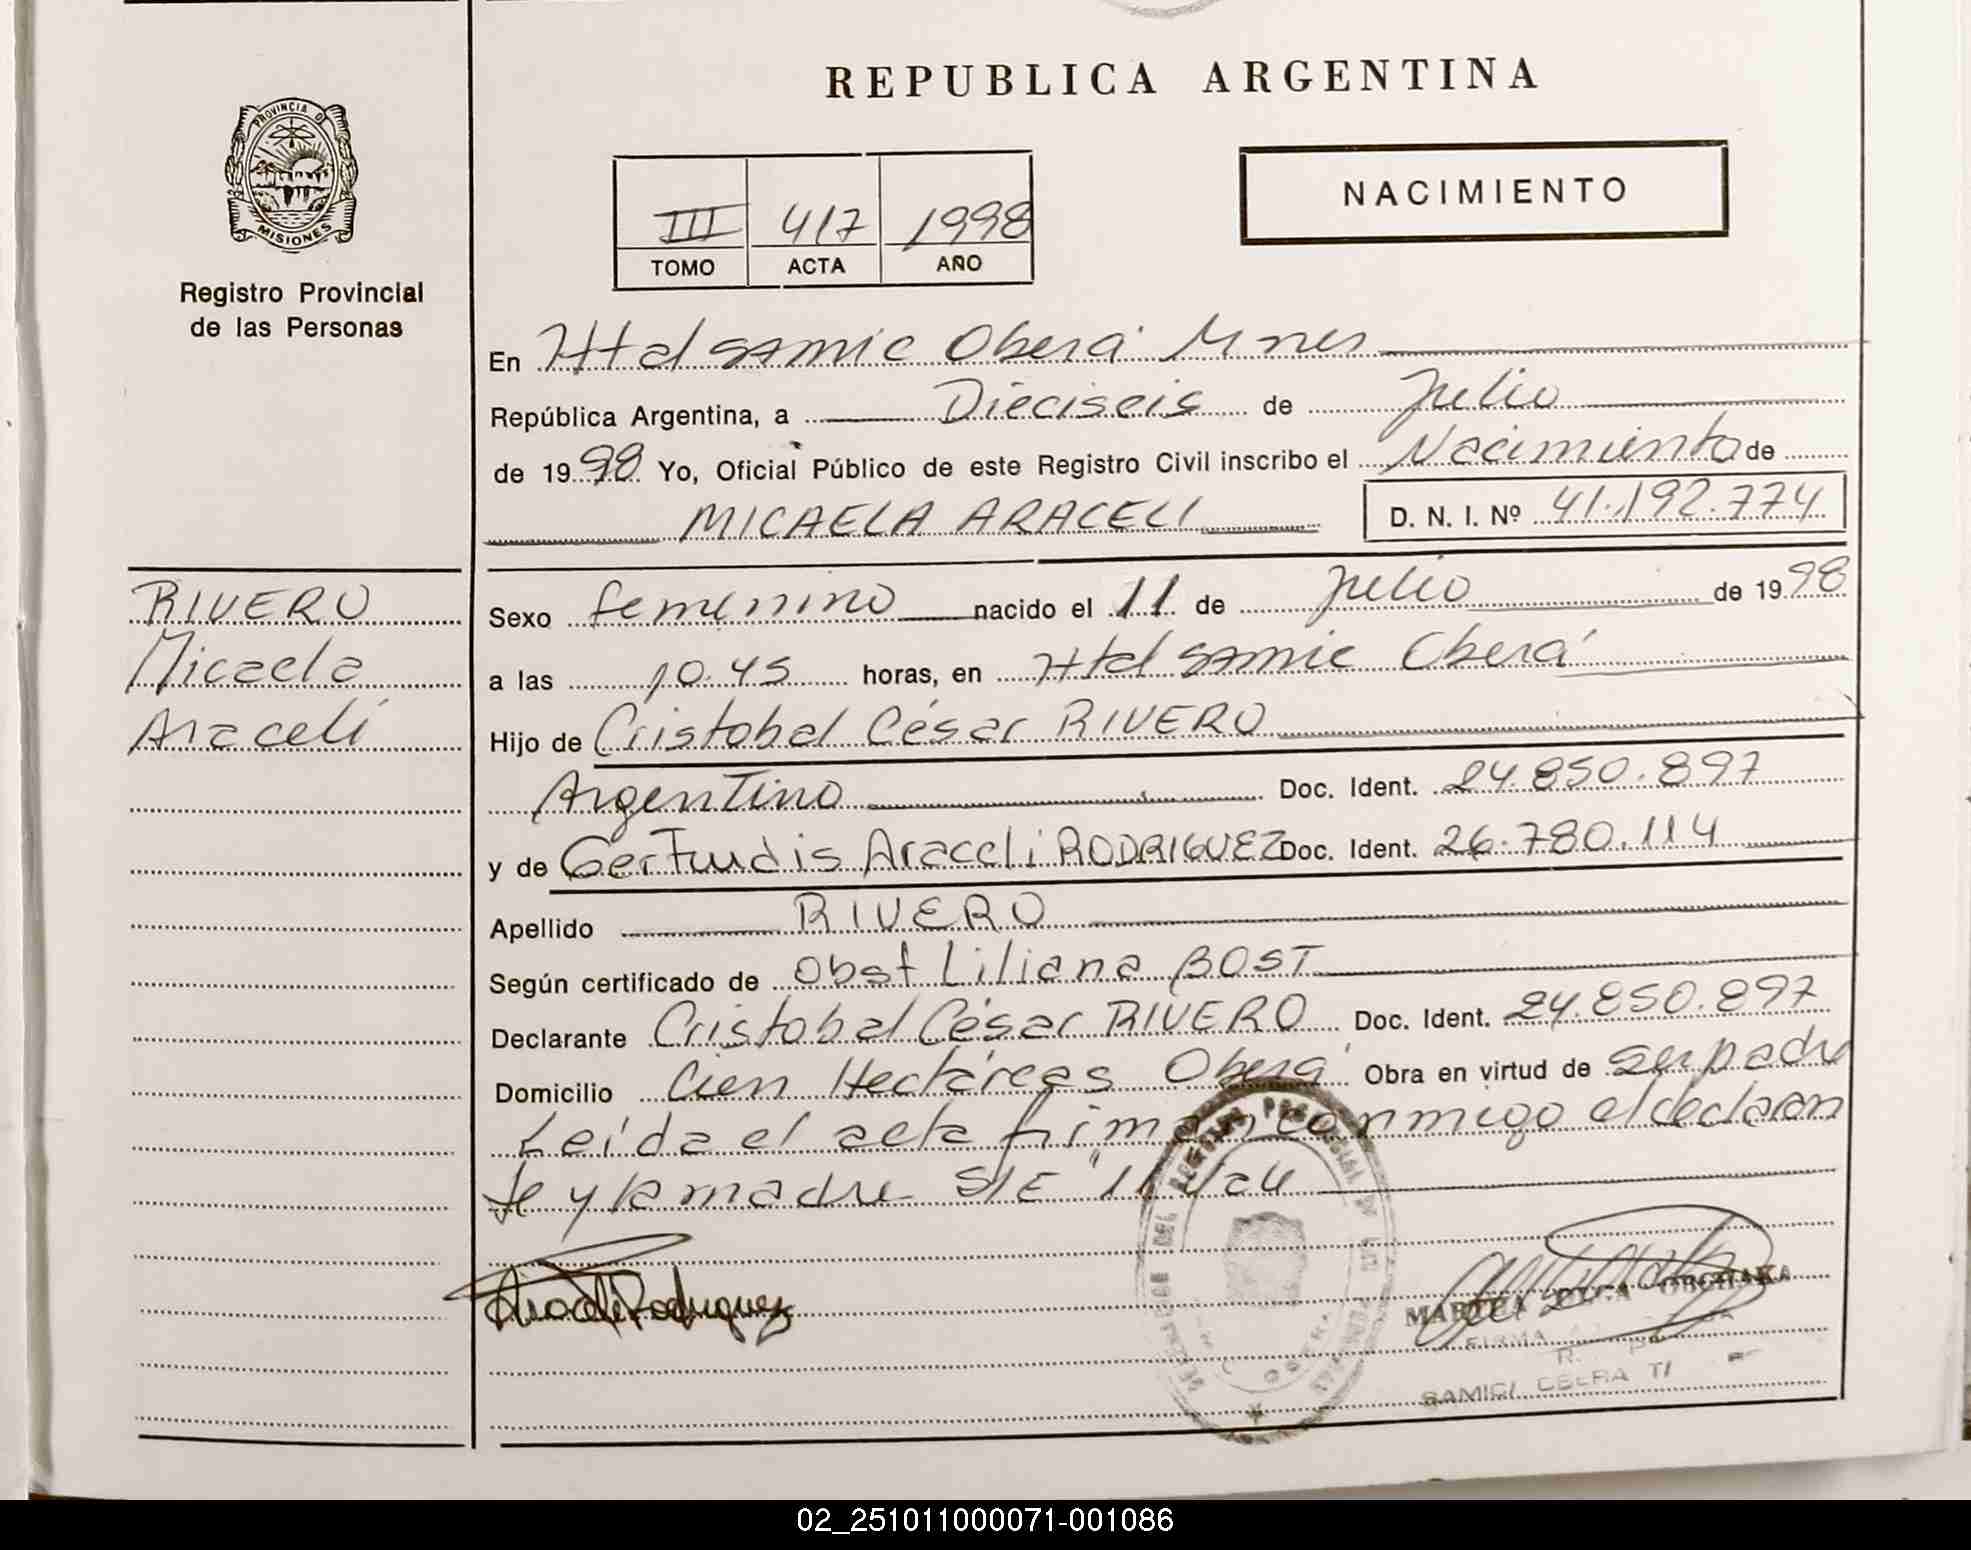 REPUBLICA ARGENTINA
PROVINCIA D
MISIONES
Registro Provincial
de las Personas
NACIMIENTO
III 417 1998
TOMO ACTA AÑO
En Htal Samic Oberá Mnes
República Argentina, a Dieciseis de Julio
de 1998 Yo, Oficial Público de este Registro Civil inscribo el Nacimiento de
MICAELA ARACELI D. N. I. Nº 41.192.774
RIVERO
Micaela
Araceli
Sexo femenino nacido el 11 de Julio de 1998
a las 10.45 horas, en Htal Samic Oberá
Hijo de Cristobal César RIVERO
Argentino Doc. Ident. 24.850.897
y de Gertrudis Araceli RODRIGUEZ Doc. Ident. 26.780.114
Apellido RIVERO
Según certificado de Obst Liliana BOST
Declarante Cristobal César RIVERO Doc. Ident. 24.850.897
Domicilio Cien Hectáreas Oberá Obra en virtud de ser padre
Leída el acta firman conmigo el declaran
te y la madre S/E
Araceli Rodriguez
MARTHA OLGA
FIRMA
SAMIC OBERA
02_251011000071-001086